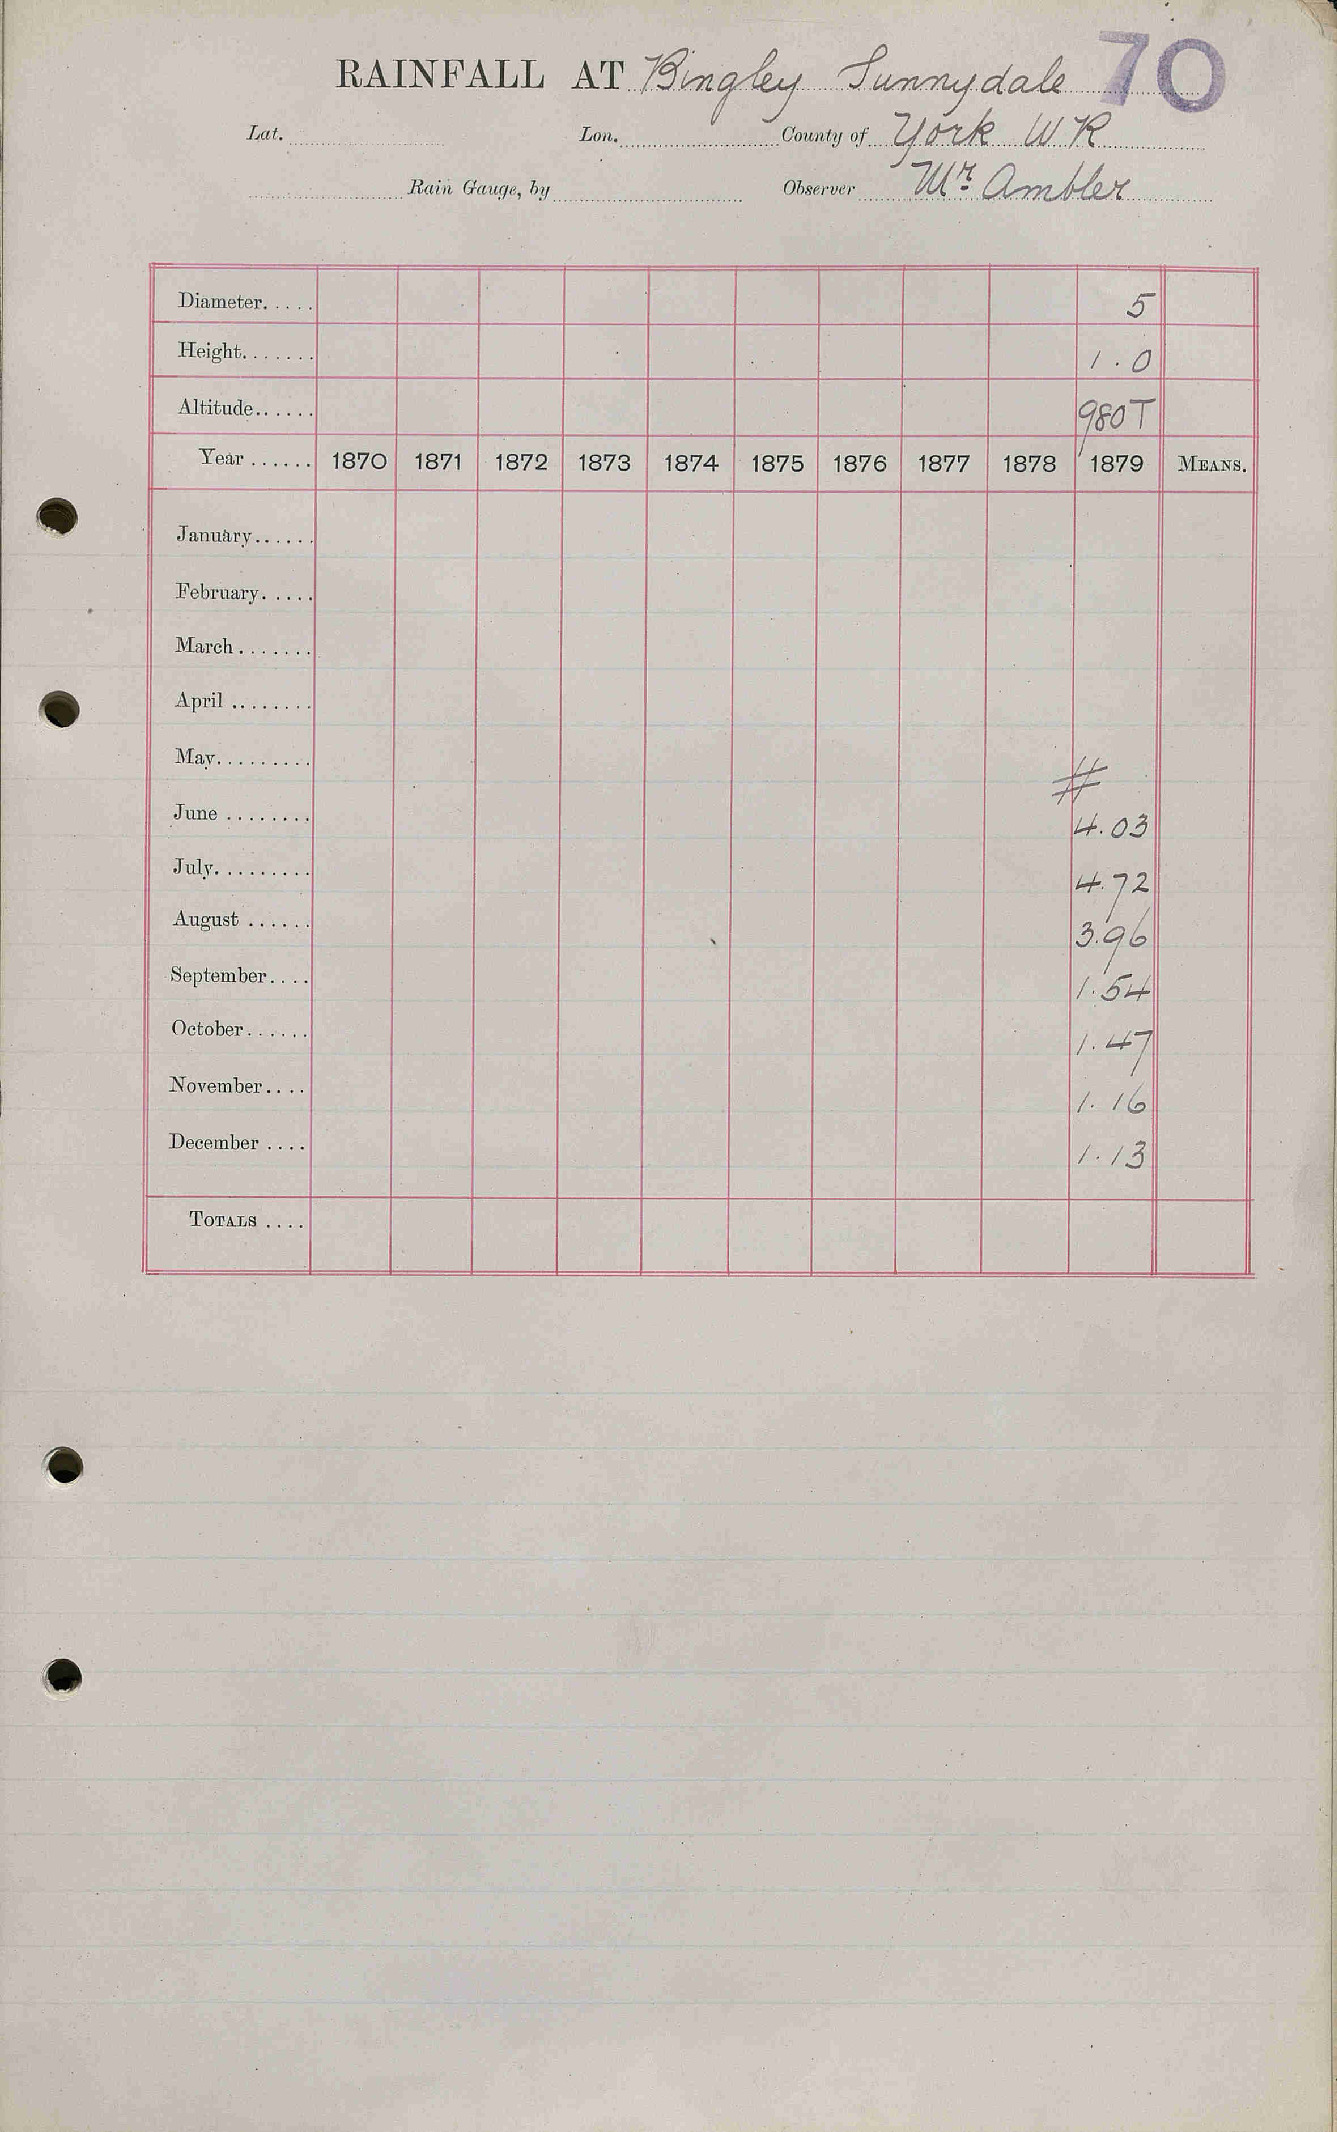 RAINFALL AT Bingley Sunnydale 70
Lat. Lon. County of York W R
Rain Gauge, by Observer Mr. Ambler
Diameter..... 5
Height....... 1.0
Altitude...... 980T
Year ...... 1870 1871 1872 1873 1874 1875 1876 1877 1878 1879 MEANS.
January......
February.....
March.......
April ........
May.........
#
June ........ 4.03
July......... 4.72
August ...... 3.96
September.... 1.54
October...... 1.47
November.... 1.16
December .... 1.13
TOTALS ....